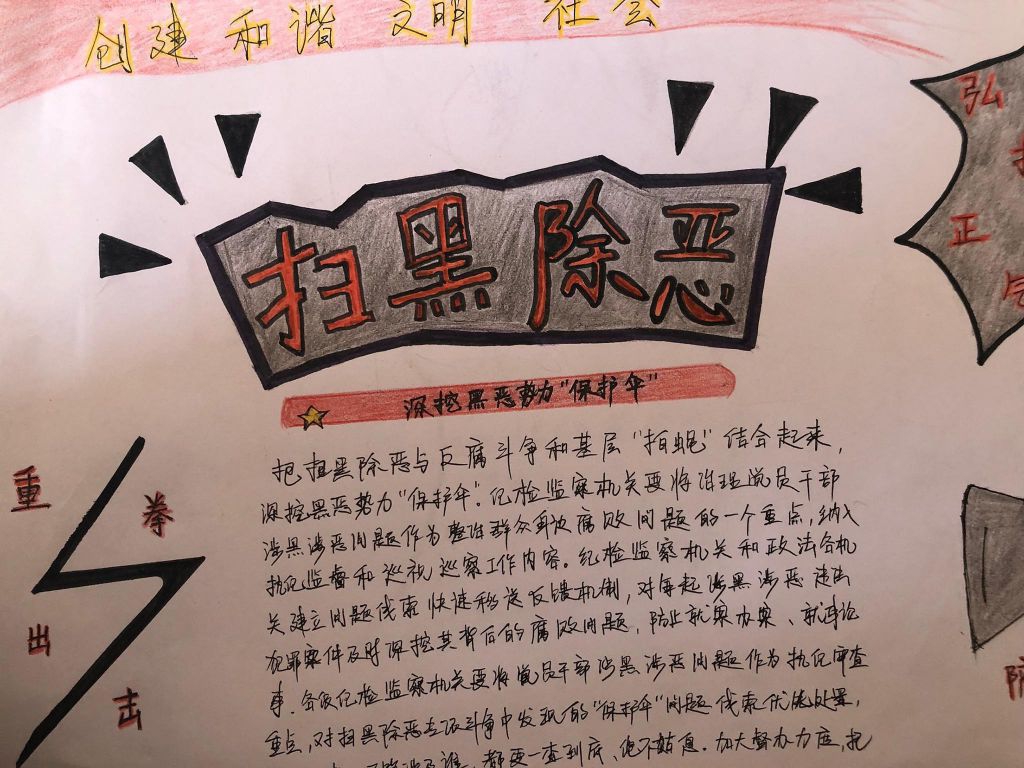 创建 和谐 文明 社会
弘
正
扫黑除恶
深挖黑恶势力"保护伞"
把扫黑除恶与反腐斗争和基层"拍蝇"结合起来,
深挖黑恶势力"保护伞"。纪检监察机关要将治理党员干部
涉黑涉恶问题作为整治群众身边腐败问题的一个重点,纳入
执纪监督和巡视巡察工作内容。纪检监察机关和政法各机
关建立问题线索快速移送反馈机制,对每起涉黑涉恶违法
犯罪案件及时深挖其背后的腐败问题,防止就案办案、就事论
事.各级纪检监察机关要将党员干部涉黑涉恶问题作为执纪审查
重点,对扫黑除恶专项斗争中发现的"保护伞"问题线索优先处置,
谁,都要一查到底、绝不姑息.加大督办力度,把
重
拳
出
击